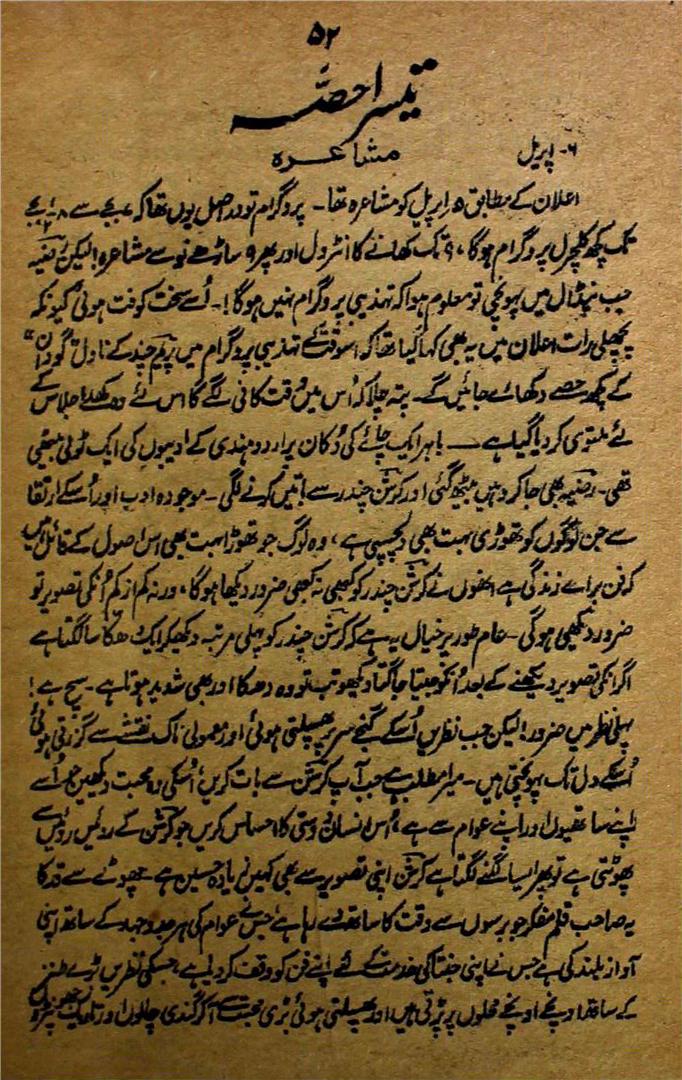 ۵۲
تیسرا حصّہ
مشاعرہ
۶۔ اپریل
اعلان کے مطابق ۵ اپریل کو مشاعرہ تھا۔ پروگرام تو دراصل یوں تھا کہ ۷ بجے سے ۸-۱/۲ بجے
تک کچھ کلچرل پروگرام ہوگا، ۹ تک کھانے کا انٹرول اور پھر ۹ ساڑھے نو سے مشاعرہ! لیکن رضیہ
جب پنڈال میں پہونچی تو معلوم ہوا کہ تہذیبی پروگرام نہیں ہوگا!۔ اُسے سخت کوفت ہوئی کیونکہ
پچھلی رات اعلان میں یہ بھی کہا گیا تھا کہ اسوقت کے تہذیبی پروگرام میں پریم چند کے ناول گئودان"
کے کچھ حصے دکھائے جائیں گے۔ پتہ چلا کہ اُس میں وقت کافی لگے گا اس لئے وہ کھلے اجلاس کے
لئے ملتوی کر دیا گیا ہے — باہر ایک چائے کی دُکان پر اردو ہندی کے ادیبوں کی ایک ٹولی بیٹھی
تھی۔ رضیہ بھی جا کر وہیں بیٹھ گئی اور کرشن چندر سے باتیں کرنے لگی۔ موجودہ ادب اور اُسکے ارتقا
سے جن لوگوں کو تھوڑی بہت بھی دلچسپی ہے، وہ لوگ جو تھوڑا بہت بھی اس اصول کے قائل ہیں
کہ فن برائے زندگی ہے انھوں نے کرشن چندر کو کبھی نہ کبھی ضرور دیکھا ہوگا، ورنہ کم از کم اُنکی تصویر تو
ضرور دیکھی ہوگی۔ عام طور پر خیال یہ ہے کہ کرشن چندر کو پہلی مرتبہ دیکھکر ایک دھکا سا لگتا ہے
اگر انکی تصویر دیکھنے کے بعد اُنکو جیتا جاگتا دیکھو تب تو وہ دھکا اور بھی شدید ہوتا ہے۔ سچ ہے!
پہلی نظر میں ضرور! لیکن جب نظریں اُسکے گنجے سر پر پھسلتی ہوئی اور معمولی ناک نقشے سے گزرتی ہوئی
اُسکے دل تک پہونچتی ہیں۔ میرا مطلب ہے جب آپ کرشن سے بات کریں، اُسکی وہ محبت دیکھیں جو اُسے
اپنے ساتھیوں اور اپنے عوام سے ہے، اُس انسان دوستی کا احساس کریں جو کرشن کے روئیں روئیں سے
پھوٹتی ہے تو پھر ایسا لگنے لگتا ہے کرشن اپنی تصویر سے بھی کہیں زیادہ حسین ہے۔ چھوٹے سے قد کا
یہ صاحب قلم مفکر جو برسوں سے وقت کا ساتھ دے رہا ہے، جس نے عوام کی ہر جدوجہد کے ساتھ اپنی
آواز بلند کی ہے جس نے اپنی جنتا کی خدمت کے لئے اپنے فن کو وقف کر دیا ہے، جسکی نظریں بڑے طنز
کے ساتھ اونچے اونچے محلوں پر پڑتی ہیں اور پھسلتی ہوئی بڑی محبت سے آکر گندی چالوں اور تاریک